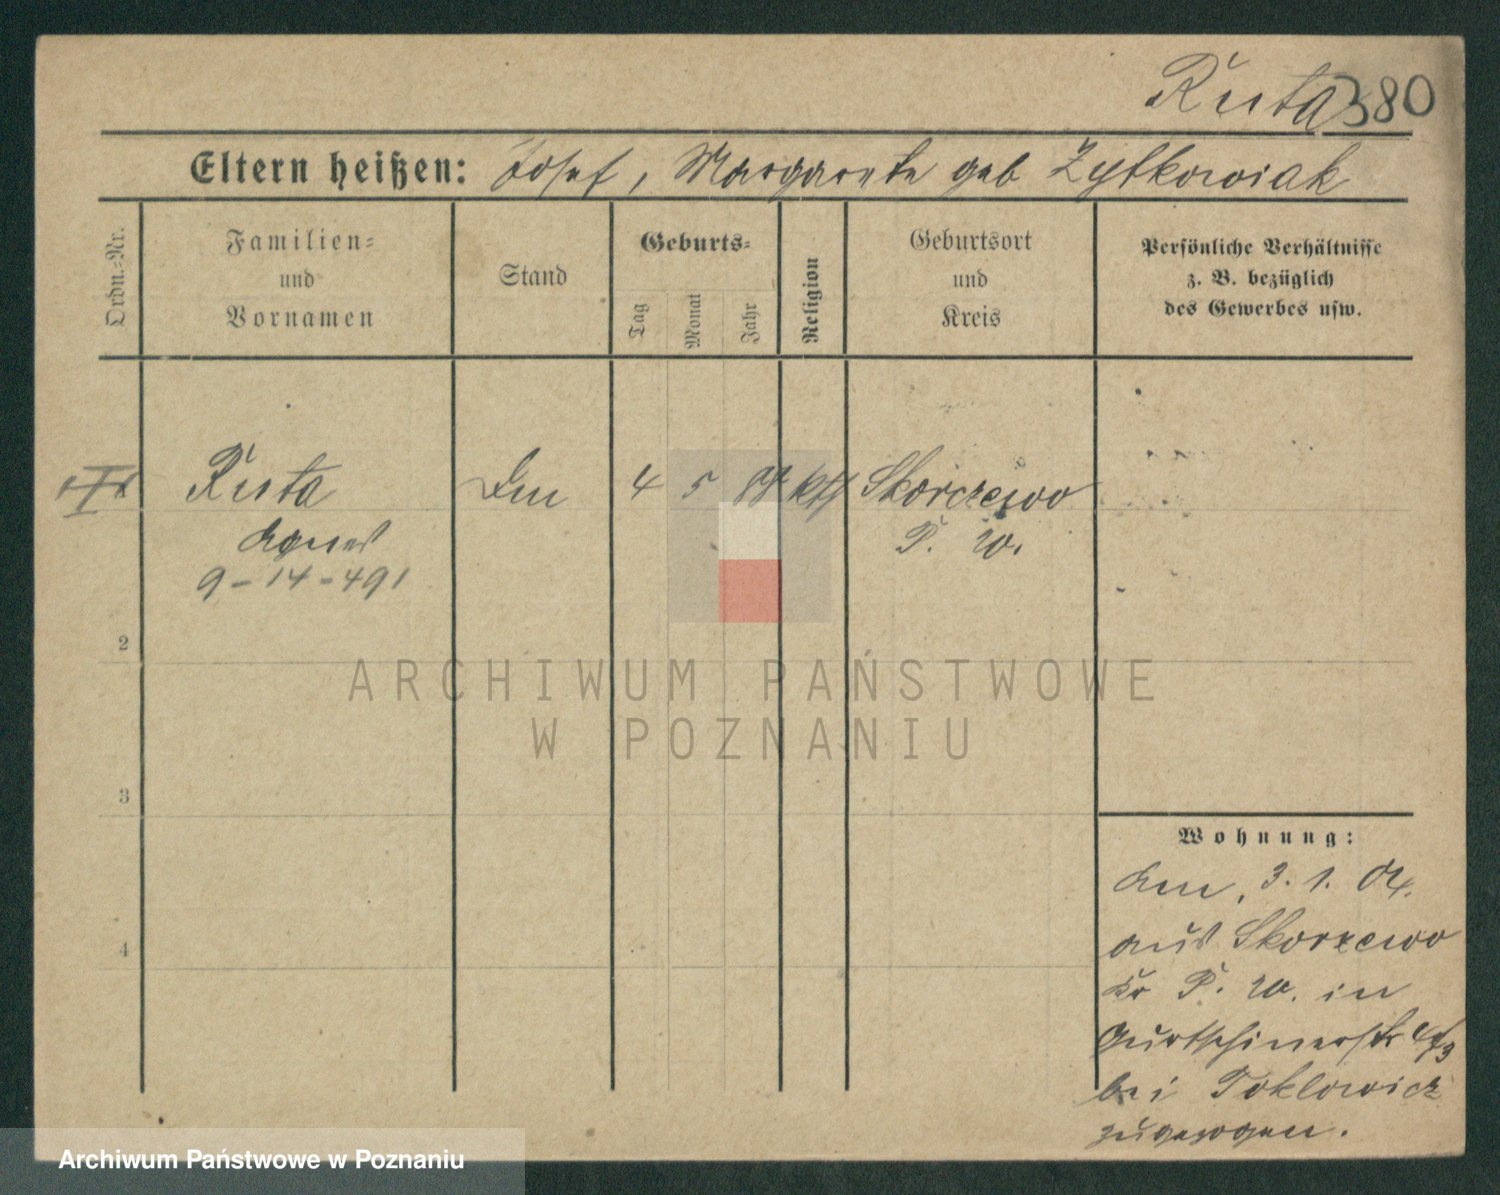 Ruta 380
Eltern heißen: Josef, Margarete geb Zytkowiak
Ordn.-Nr.
Familien-
und
Vornamen
Stand
Geburts-
Tag
Monat
Jahr
Religion
Geburtsort
und
Kreis
Persönliche Verhältnisse
z. B. bezüglich
des Gewerbes usw.
Ruta
4 5 kth Skorczewo
Agnes
P. W.
9-14-491
2
3
4
Wohnung:
Am, 3. 1. 04.
aus Skorzewo
Kr P. W. in
Gurtschinerstr
bei Toklowicz
zugezogen.
ARCHIWUM PAŃSTWOWE
W POZNANIU
Archiwum Państwowe w Poznaniu